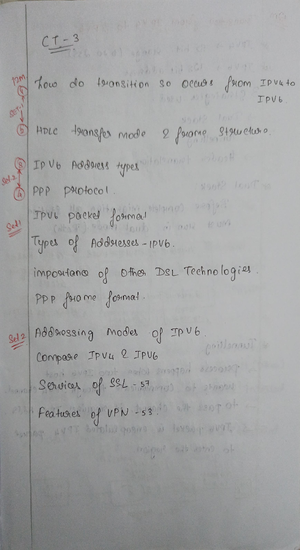 CT-3
how do transition so occurs from IPV4 to
IPV6
HDLC transfer mode & frame structure
IPV6 Address types
PPP protocol.
Set 1
IPV6 packet format
Types of Addresses - IPV6.
importance of Other DSL Technologies.
PPP frame format.
Set 2
Addressing Modes of IPV6
Compare IPV4 & IPV6
Services of SSL - 57
Features of VPN - 53.